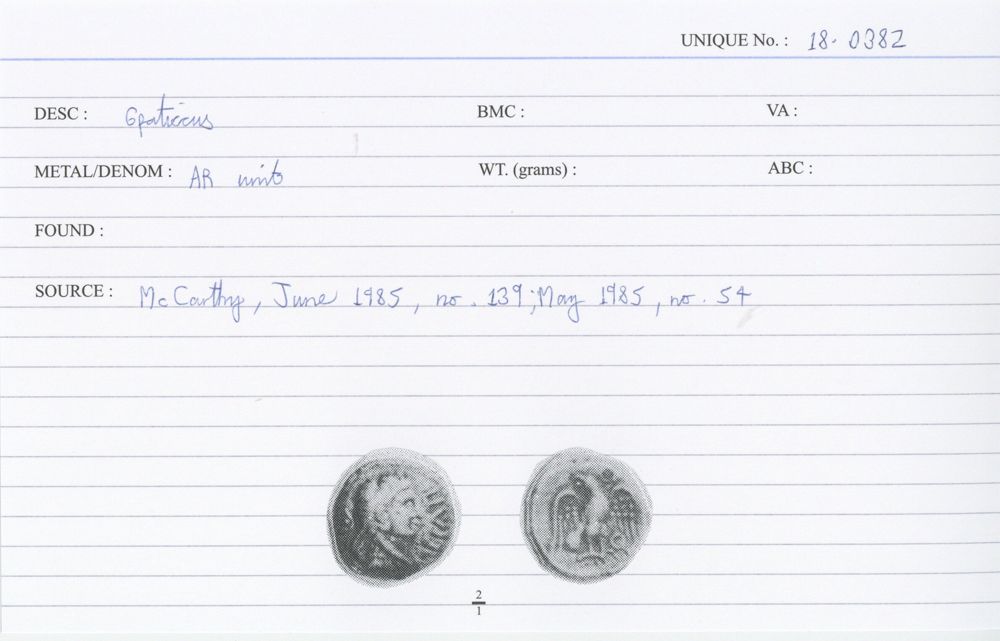 UNIQUE No. : 18- 0382
DESC : Epaticcus BMC : VA :
METAL/DENOM : AR unit WT. (grams) : ABC :
FOUND :
SOURCE : McCarthy, June 1985, no. 139; May 1985, no. 54
2
1